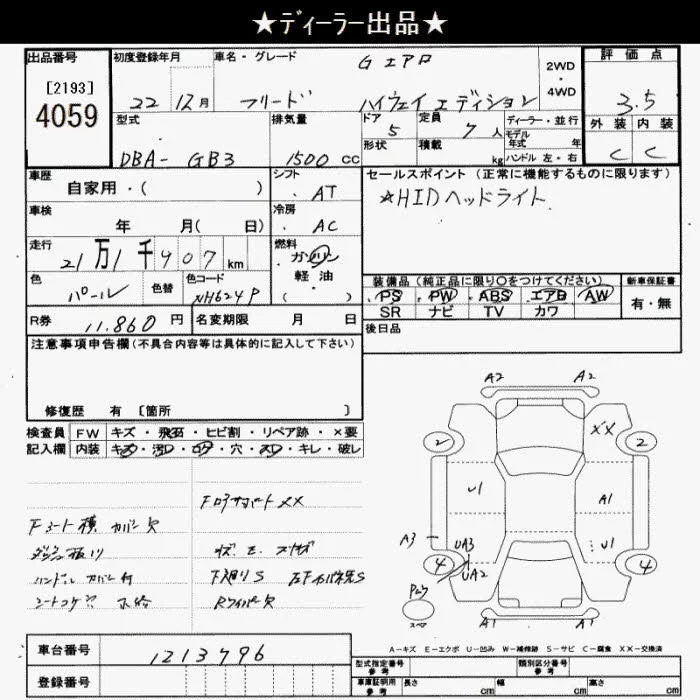 ★ディーラー出品★
出品番号
[2193]
4059
初度登録年月
22年 12月
車名・グレード
フリード
G エアロ
ハイウェイエディション
2WD
・
4WD
評価点
3.5
外装 内装
C C
型式
DBA- GB3
排気量
1500 cc
ドア
5
形状
定員
7人
積載
kg
ディーラー・並行
モデル年式 年
ハンドル 左・右
車歴
自家用・( )
シフト
AT
車検
年 月( 日)
冷房
AC
走行
21万1千907km
燃料
ガソリン
軽油
( )
色
パール
色替
色コード
NH624P
R券 11,860円
名変期限 月 日
セールスポイント (正常に機能するものに限ります)
☆HIDヘッドライト
装備品 (純正品に限り○をつけてください)
PS ・ PW ・ ABS ・ エアB ・ AW
SR ナビ TV カワ
新車保証書
有・無
後日品
注意事項申告欄 (不具合内容等は具体的に記入して下さい)
修復歴 有 [箇所 ]
検査員記入欄
FW キズ・飛石・ヒビ割・リペア跡・×要
内装 キズ・汚レ・コゲ・穴・スレ・キレ・破レ
Fコアサポート XX
Fシート横 カバー欠
ハンドル カバー付
F廻りS
Rワイパー欠
A2 A2
XX
2 2
U1 A1
A3
UA3 U1
UA2
4 4
A1 A1
A-キズ E-エクボ U-凹み W-補修跡 S-サビ C-腐食 XX-交換済
車台番号 1213796
登録番号
型式指定番号 参考
類別区分番号 参考
車庫証明用 参考
長さ cm 幅 cm 高さ cm